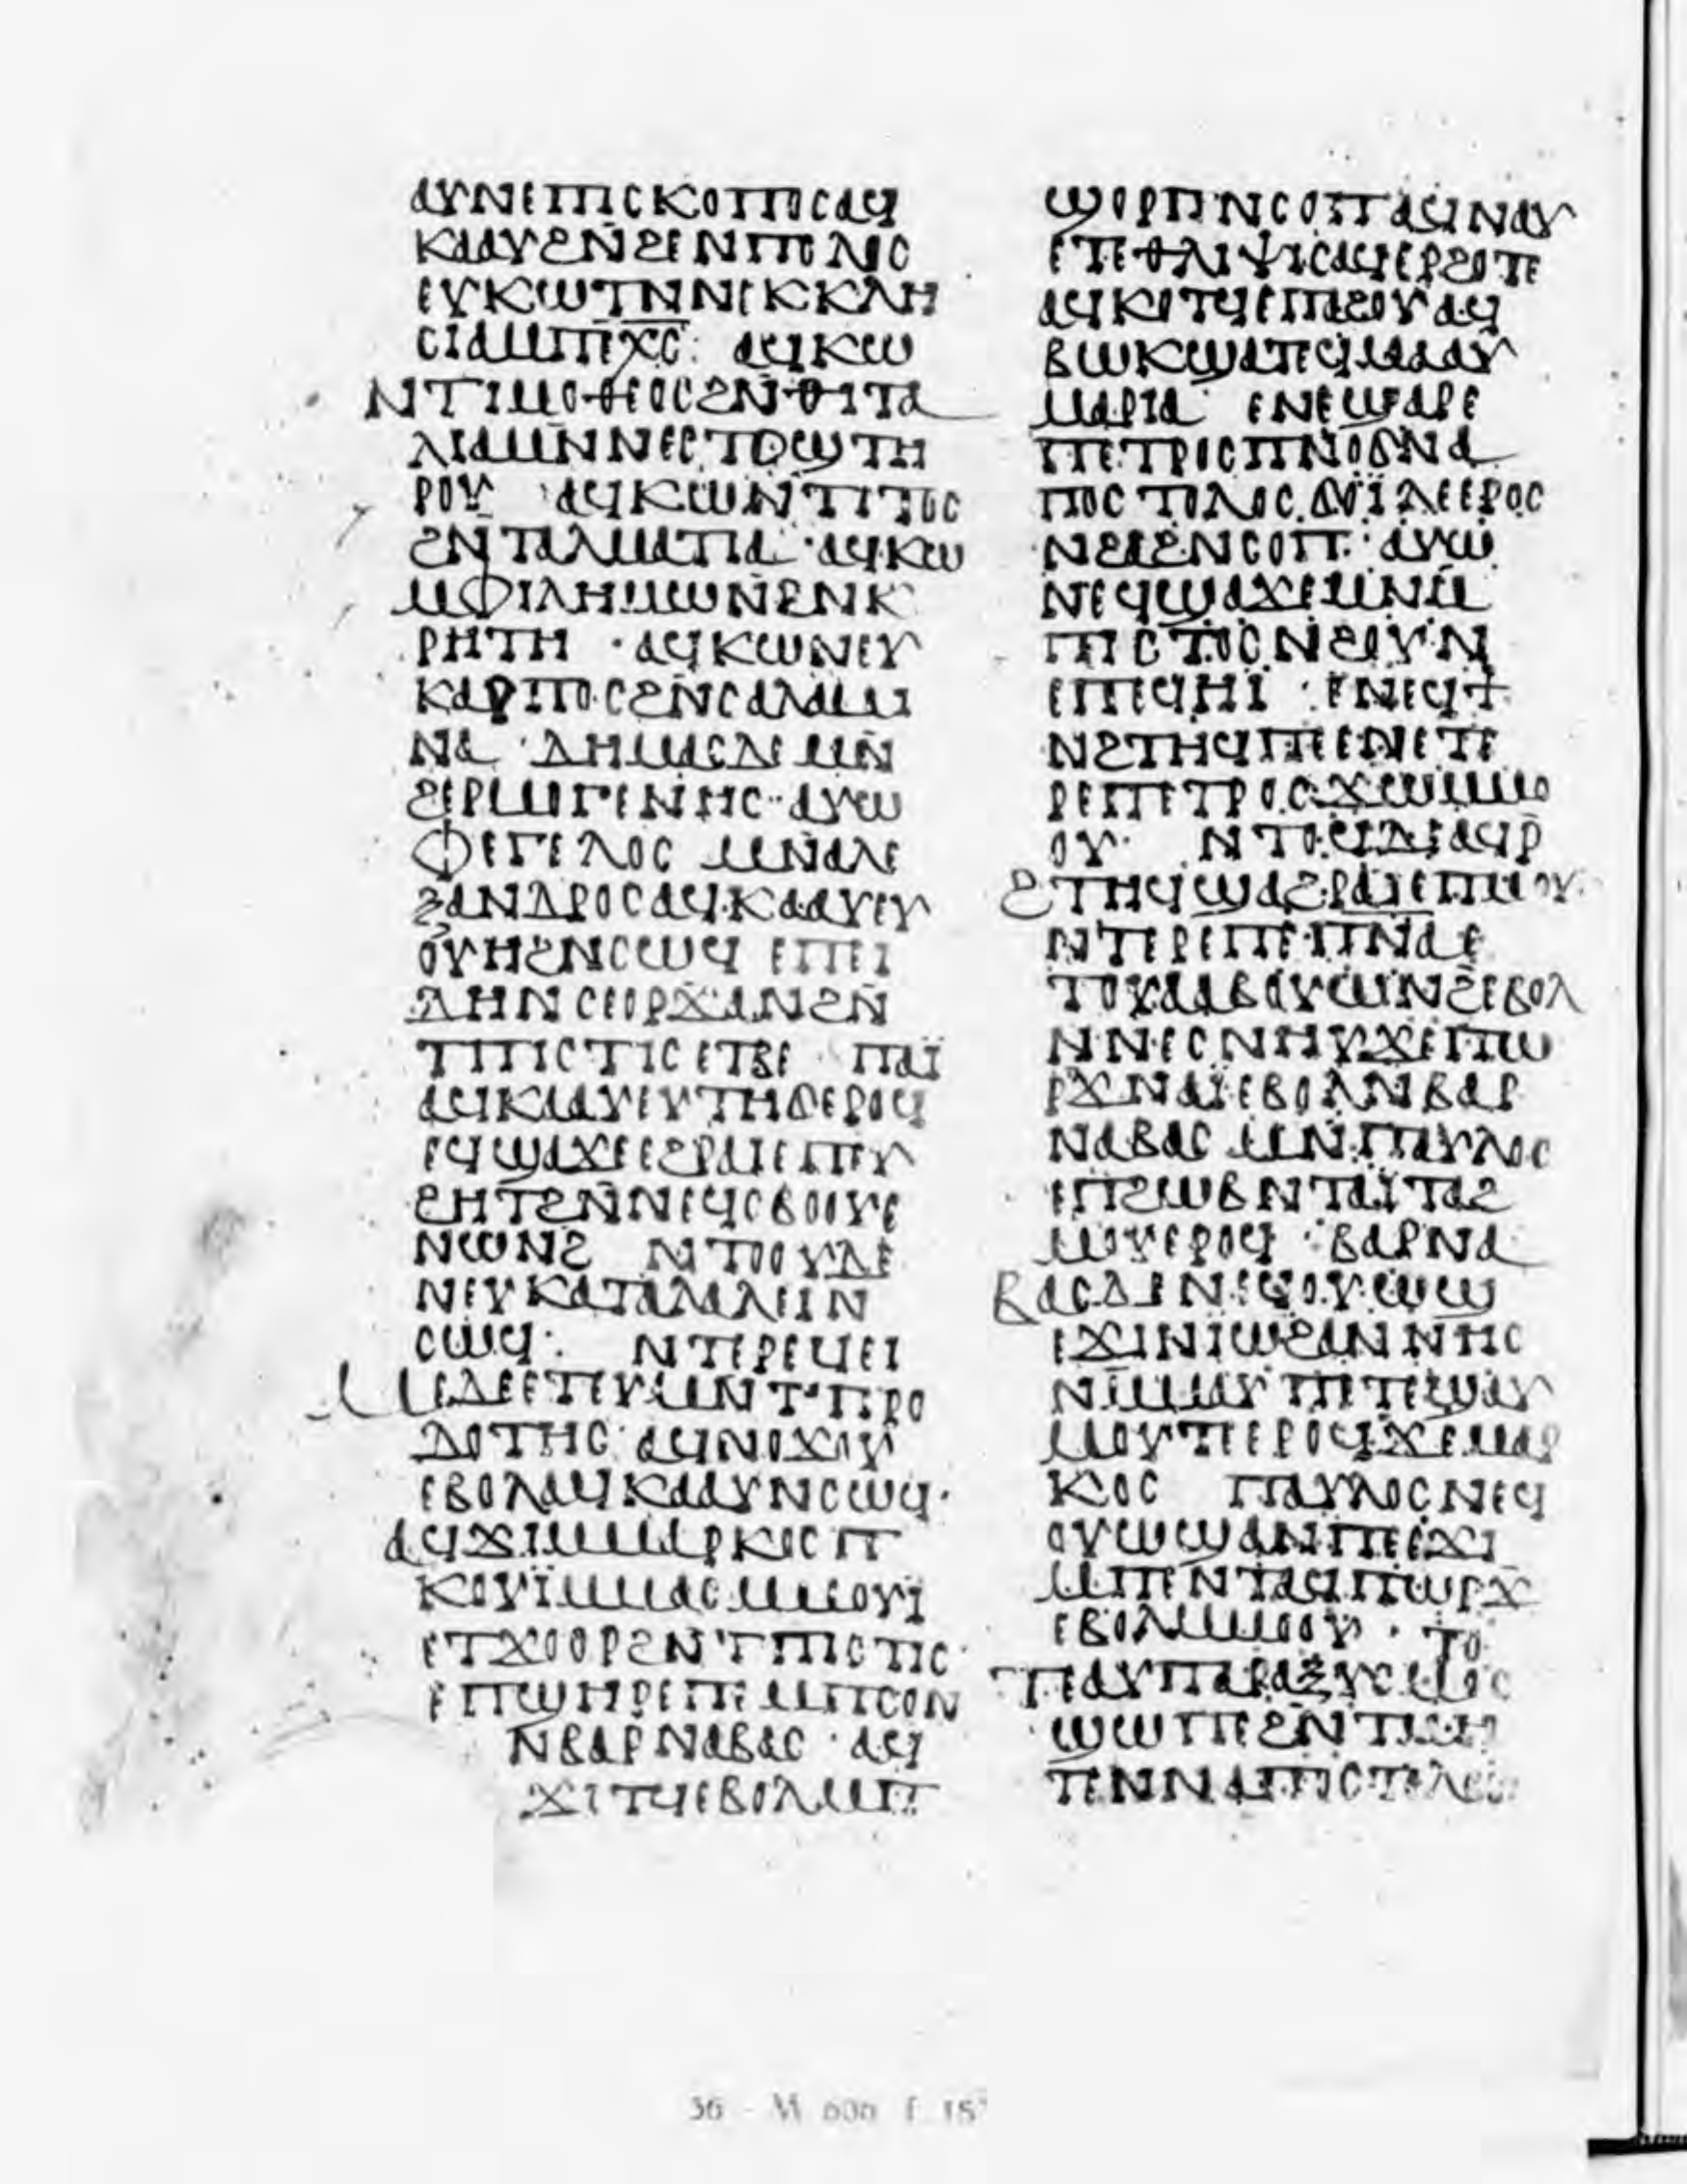 ⲁⲩⲛⲉⲡⲓⲥⲕⲟⲡⲟⲥⲁϥ
ⲕⲁⲁⲩϩⲛ̄ϩⲉⲛⲡⲟⲗⲓⲥ
ⲉⲩⲕⲱⲧⲛ̄ⲛⲉⲕⲕⲗⲏ
ⲥⲓⲁⲙⲡⲉⲭ̅ⲥ̅: ⲁϥⲕⲱ
ⲛⲧⲓⲙⲟⲑⲉⲟⲥϩⲛ̄ⲑⲓⲧⲁ
ⲗⲓⲁⲙⲛ̄ⲛⲉⲥⲧⲟϣⲧⲏ
ⲣⲟⲩ ⲁϥⲕⲱⲛⲧⲓⲧⲟⲥ
ϩⲛⲧⲁⲗⲙⲁⲧⲓⲁ ·ⲁϥⲕⲱ
ⲙⲫⲓⲗⲏⲙⲱⲛϩⲛⲕ
ⲣⲏⲧⲏ ·ⲁϥⲕⲱⲛⲉⲩ
ⲕⲁⲣⲡⲟⲥϩⲛ̄ⲥⲁⲗⲁⲙⲓ
ⲛⲁ ·ⲇⲏⲙⲁⲥⲇⲉⲙⲛ̄
ϩⲉⲣⲙⲟⲅⲉⲛⲏⲥ·ⲁⲩⲱ
ⲫⲉⲅⲉⲗⲟⲥ ⲙⲛⲁⲗⲉ
ⲝⲁⲛⲇⲣⲟⲥⲁϥⲕⲁⲁⲩⲉⲩ
ⲟⲩⲏϩⲛⲥⲱϥ ⲉⲡⲉⲓ
ⲇⲏⲛⲥⲉⲟⲣϫⲁⲛϩⲛ̄
ⲧⲡⲓⲥⲧⲓⲥⲉⲧⲃⲉ ⲡⲁⲓ̈
ⲁϥⲕⲁⲁⲩⲉⲩⲧⲏϭⲉⲣⲟϥ
ⲉϥϣⲁϫⲉⲉϩⲣⲁⲓⲉⲡⲉⲩ
ϩⲏⲧϩⲛ̄ⲛⲉϥⲥⲃⲟⲟⲩⲉ
ⲛⲱⲛϩ ⲛⲧⲟⲟⲩⲇⲉ
ⲛⲉⲩⲕⲁⲧⲁⲗⲁⲗⲉⲓⲛ
ⲥⲱϥ: ⲛⲧⲉⲣⲉϥⲉⲓ
ⲙⲉⲇⲉⲉⲧⲉⲩⲙⲛⲧ·ⲡⲣⲟ
ⲇⲟⲧⲏⲥ ⲁϥⲛⲟϫⲟⲩ
ⲉⲃⲟⲗⲁϥⲕⲁⲁⲩⲛⲥⲱϥ·
ⲁϥϫⲓⲙⲙⲁⲣⲕⲟⲥⲡ
ⲕⲟⲩⲓ̈ⲙⲙⲁⲥⲙⲙⲟⲩⲓ̈
ⲉⲧϫⲟⲟⲣϩⲛⲧⲡⲓⲥⲧⲓⲥ·
ⲉⲡϣⲏⲣⲉⲡⲉⲙⲡⲥⲟⲛ
ⲛⲃⲁⲣⲛⲁⲃⲁⲥ ·ⲁϥ
ϫⲓⲧϥⲉⲃⲟⲗⲙⲡ
ϣⲟⲣⲡⲛⲥⲟⲡⲁϥⲛⲁⲩ
ⲉⲧⲉⲑⲗⲓⲯⲓⲥⲁϥⲉⲣϩⲟⲧⲉ
ⲁϥⲕⲟⲧϥⲉⲡⲁϩⲟⲩⲁϥ
ⲃⲱⲕϣⲁⲧⲉϥⲙⲁⲁⲩ
ⲙⲁⲣⲓⲁ ⲉⲛⲉϣⲁⲣⲉ
ⲡⲉⲧⲣⲟⲥⲡⲛⲟϭⲛⲁ
ⲡⲟⲥⲧⲟⲗⲟⲥ ϭⲟⲓ̈ⲗⲉⲉⲣⲟⲥ
ⲛϩⲁϩⲛⲥⲟⲡ: ⲁⲩⲱ
ⲛⲉϥϣⲁϫⲉⲙⲛⲙ
ⲡⲓⲥⲧⲟⲥⲛϩⲟⲩⲛ
ⲉⲡⲉϥⲏⲓ · ⲉⲛⲉϥϯ
ⲛϩⲧⲏϥⲡⲉⲉⲛⲉⲧⲉ
ⲣⲉⲡⲉⲧⲣⲟⲥϫⲱⲙⲙⲟ
ⲟⲩ· ⲛⲧⲟϥⲇⲉⲁϥⲣ̄
ϩⲧⲏϥϣⲁϩⲣⲁⲓⲉⲡⲙⲟⲩ·
ⲛⲧⲉⲣⲉⲡⲉⲡ̅ⲛ̅ⲁ̅ⲉ
ⲧⲟⲩⲁⲁⲃⲟⲩⲱⲛϩⲉⲃⲟⲗ
ⲛⲛⲉⲥⲛⲏⲩϫⲉⲡⲱ
ⲣϫⲛⲁⲓ̈ⲉⲃⲟⲗⲛⲃⲁⲣ
ⲛⲁⲃⲁⲥ ⲙⲛⲡⲁⲩⲗⲟⲥ
ⲉⲡϩⲱⲃⲛⲧⲁⲓ̈ⲧⲁϩ
ⲙⲟⲩⲉⲣⲟϥ ·ⲃⲁⲣⲛⲁ
ⲃⲁⲥⲇⲉⲛⲉϥⲟⲩⲱϣ
ⲉϫⲓⲛⲓⲱϩⲁⲛⲛⲏⲥ
ⲛⲙⲙⲁⲩ ⲡⲉⲧⲉϣⲁⲩ
ⲙⲟⲩⲧⲉⲉⲣⲟϥϫⲉⲙⲁⲣ
ⲕⲟⲥ ⲡⲁⲩⲗⲟⲥⲛⲉϥ
ⲟⲩⲱϣⲁⲛⲡⲉⲉϫⲓ
ⲙⲡⲉⲛⲧⲁϥⲡⲱⲣϫ
ⲉⲃⲟⲗⲙⲙⲟⲟⲩ · ⲧⲟ
ⲧⲉⲁⲩⲡⲁⲣⲁⲝⲩⲥⲙⲟⲥ
ϣⲱⲡⲉϩⲛⲧⲙⲏ
ⲧⲉⲛⲛⲁⲡⲟⲥⲧⲟⲗⲟⲥ
36 - M 606 f. 15ᵛ